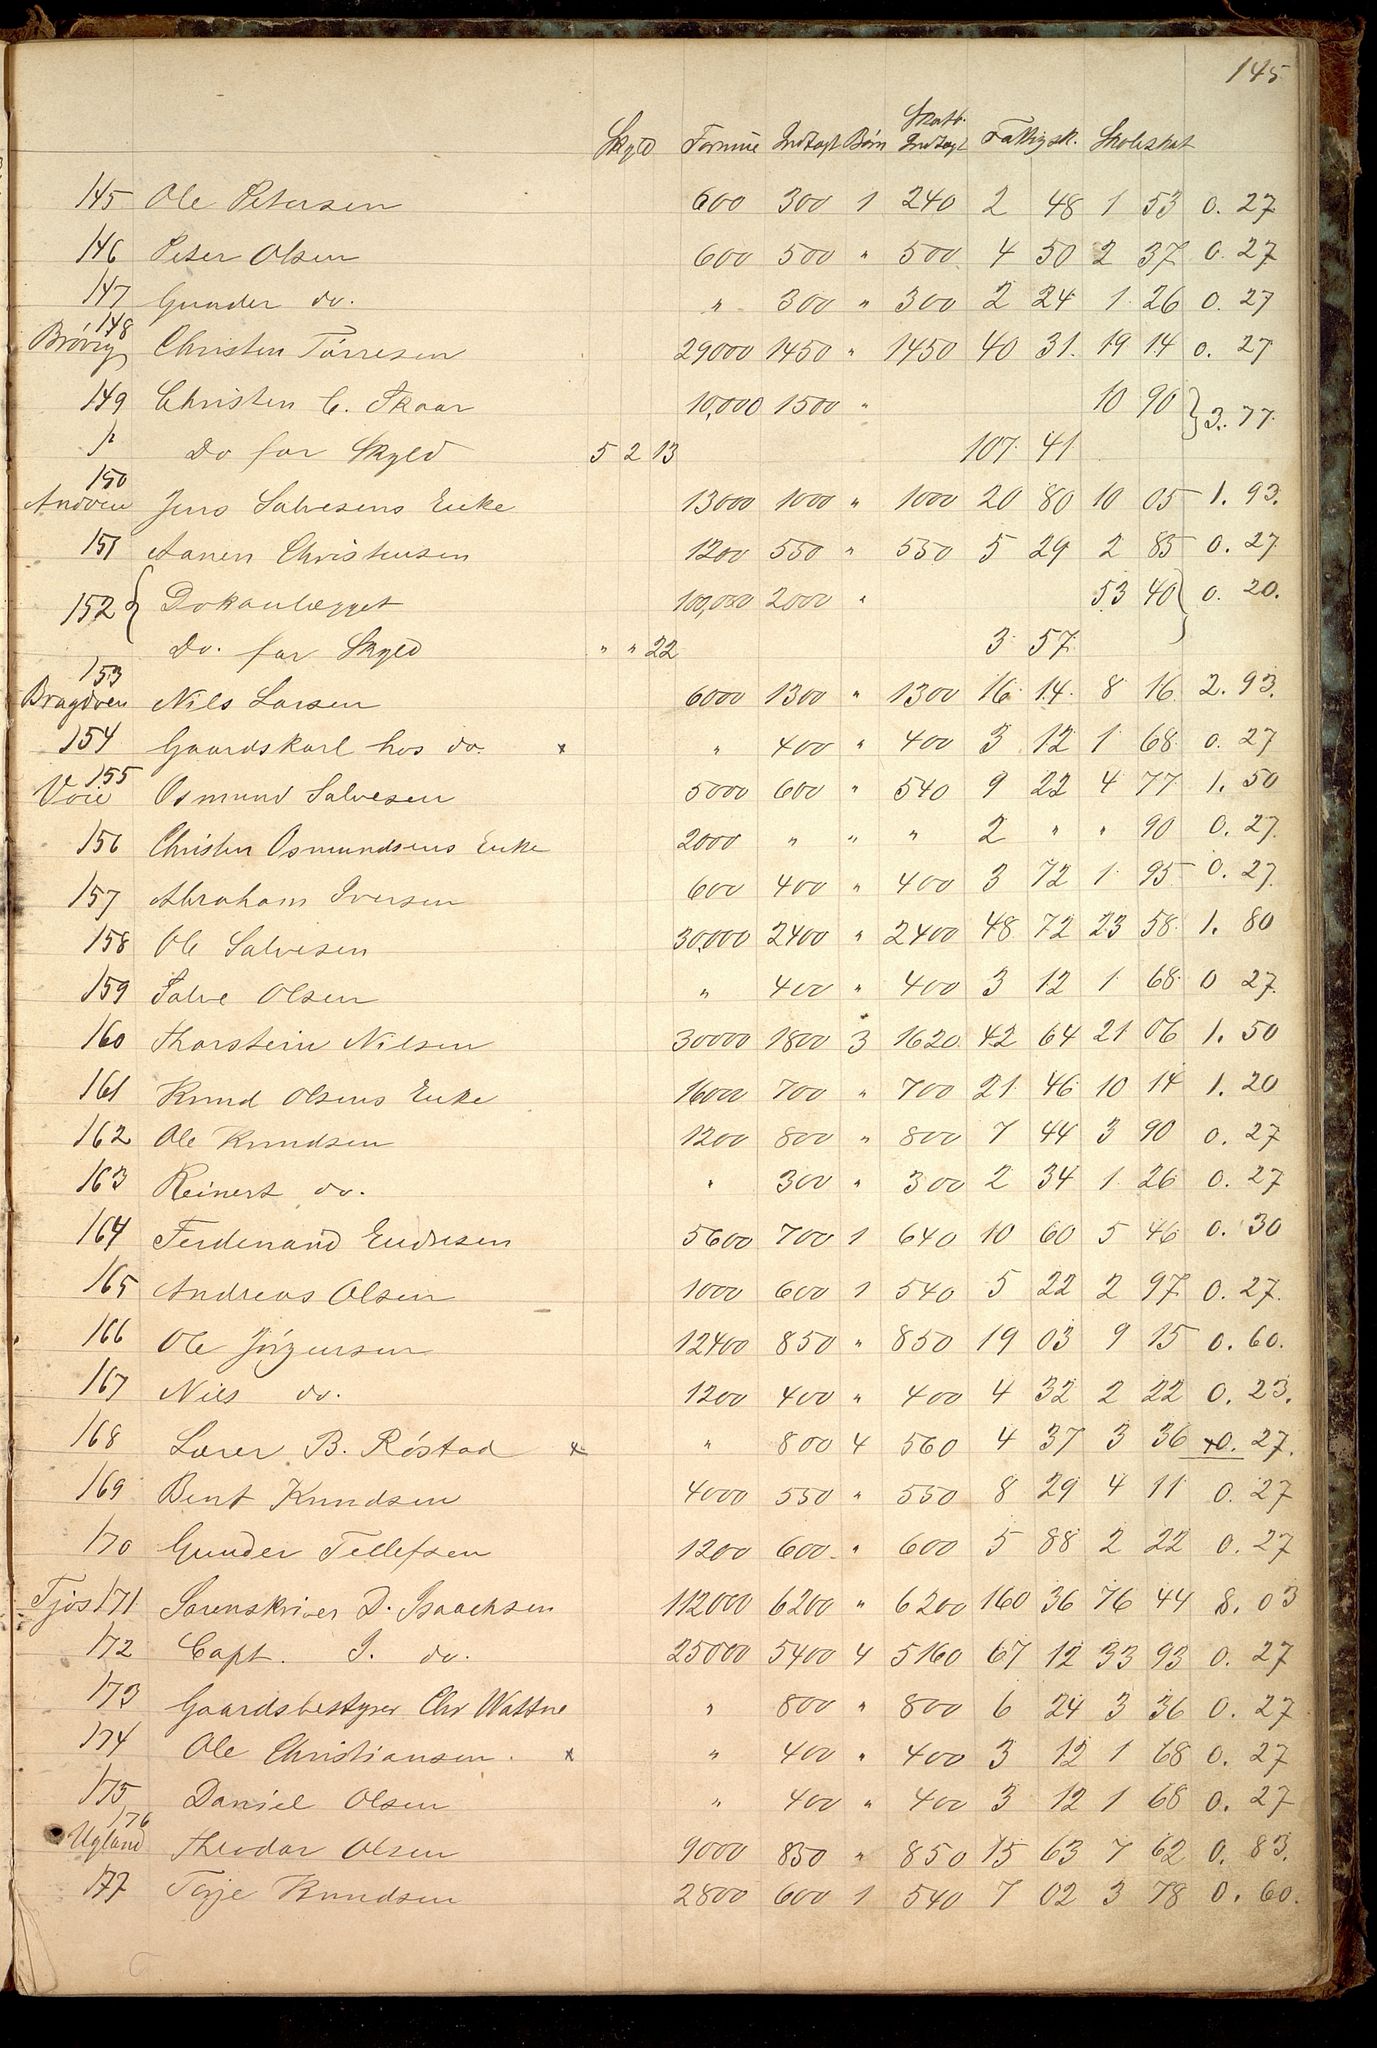 145
Skyld Formue Indtægt Børn Skatb. Indtægt Fattigsk. Skoleskat
145 Ole Petersen 600 300 1 240 2 48 1 53 0. 27
146 Peter Olsen 600 500 " 500 4 50 2 37 0. 27
147 Gunder do. " 300 " 300 2 24 1 26 0. 27
148 Brøvig Christen Tørresen 29000 1450 " 1450 40 31. 19 14 0. 27
149 Christen C. Skaar 10,000 1500 " 10 90 } 3. 77.
" Do for Skyld 5 2 13 107 41
150 Andøen Jens Salvesens Enke 13000 1000 " 1000 20 80 10 05 1. 93.
151 Aanen Christensen 1200 550 " 550 5 29 2 85 0. 27
152 { Dokanlægget 100,000 2000 " 53 40 } 0. 20.
Do. for Skyld " " 22 3 57
153 Bragdøen Nils Larsen 6000 1300 " 1300 16 14 8 16 2. 93.
154 Gaardskarl hos do. x " 400 " 400 3 12 1 68 0. 27
155 Voie Osmund Salvesen 5000 600 " 540 9 22 4 77 1. 50
156 Christen Osmundsens Enke 2000 " " " 2 " " 90 0. 27.
157 Abraham Iversen 600 400 " 400 3 72 1 95 0. 27
158 Ole Salvesen 30,000 2400 " 2400 48 72 23 58 1. 80
159 Salve Olsen " 400 " 400 3 12 1 68 0 27
160 Thorstein Nilsen 30000 1800 3 1620 42 64 21 06 1. 50
161 Knud Olsens Enke 16000 700 " 700 21 46 10 14 1. 20
162 Ole Knudsen 1200 800 " 800 7 44 3 90 0. 27
163 Reinert do. " 300 " 300 2 34 1 26 0. 27
164 Ferdenand Endresen 5600 700 1 640 10 60 5 46 0. 30
165 Andreas Olsen 1000 600 1 540 5 22 2 97 0. 27.
166 Ole Jørgensen 12400 850 " 850 19 03 9 15 0. 60.
167 Nils do. 1200 400 " 400 4 32 2 22 0. 23.
168 Lærer B. Røstad x " 800 4 560 4 37 3 36 x0. 27.
169 Bent Knudsen 4000 550 " 550 8 29 4 11 0. 27
170 Gunder Tellefsen 1200 600 " 600 5 88 2 22 0. 27
Tjos 171 Sorenskriver D. Isaachsen 112000 6200 " 6200 160 36 76 44 8. 03
172 Capt. I. do. 25000 5400 4 5160 67 12 33 93 0. 27
173 Gaardsbestyrer Chr Wattne " 800 " 800 6 24 3 36 0. 27
174 Ole Christiansen. x " 400 " 400 3 12 1 68 0. 27
175 Daniel Olsen " 400 " 400 3 12 1 68 0. 27
176 Ugland Theodor Olsen 9000 850 " 850 15 63 7 62 0. 83.
177 Terje Knudsen 2800 600 1 540 7 02 3 78 0. 60.